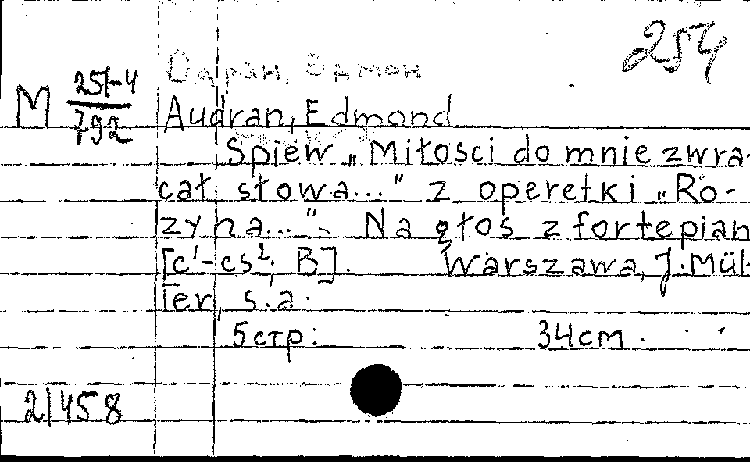 254
Одран, Эдмон
M 251-4/792
Audran, Edmond
Śpiew „Miłości do mnie zwra-
cał słowa..." z operetki „Ro-
zyna...". Na głos z fortepian
[c¹-cs²; B]. Warszawa, J. Mül-
ler, s.a.
5 стр. 34 cm.
21458